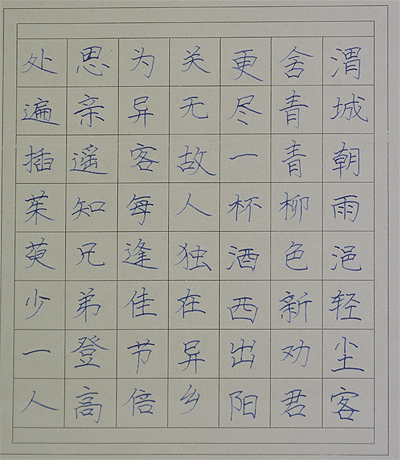 渭城朝雨浥轻尘客
舍青青柳色新劝君
更尽一杯酒西出阳
关无故人独在异乡
为异客每逢佳节倍
思亲遥知兄弟登高
处遍插茱萸少一人